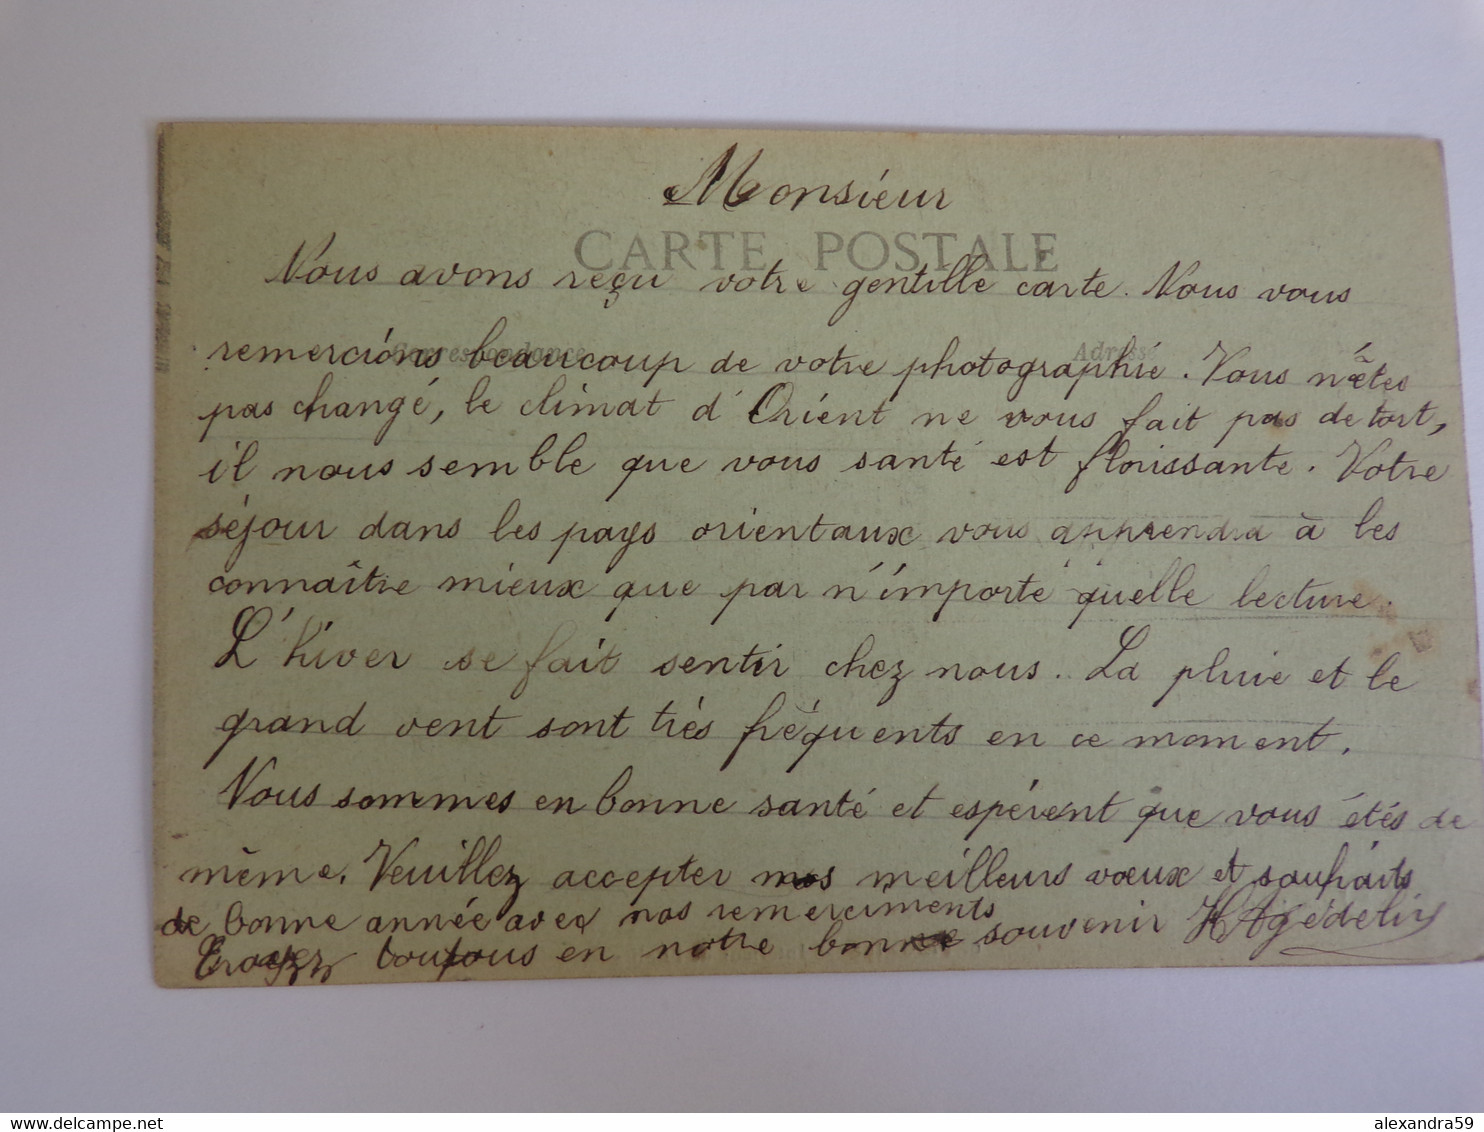 Monsieur
CARTE POSTALE
Nous avons reçu votre gentille carte. Nous vous
Correspondance
Adresse
remercions beaucoup de votre photographie. Vous n'êtes
pas changé, le climat d'Orient ne vous fait pas de tort,
il nous semble que vous santé est florissante. Votre
séjour dans les pays orientaux vous apprendra à les
connaître mieux que par n'importe quelle lecture.
L'hiver se fait sentir chez nous. La pluie et le
grand vent sont très fréquents en ce moment.
Nous sommes en bonne santé et espèrent que vous étés de
même. Veuillez accepter mes meilleurs vœux et souhaits
de bonne année avec nos remerciments
Croyez toujous en notre bonne souvenir
alexandra59